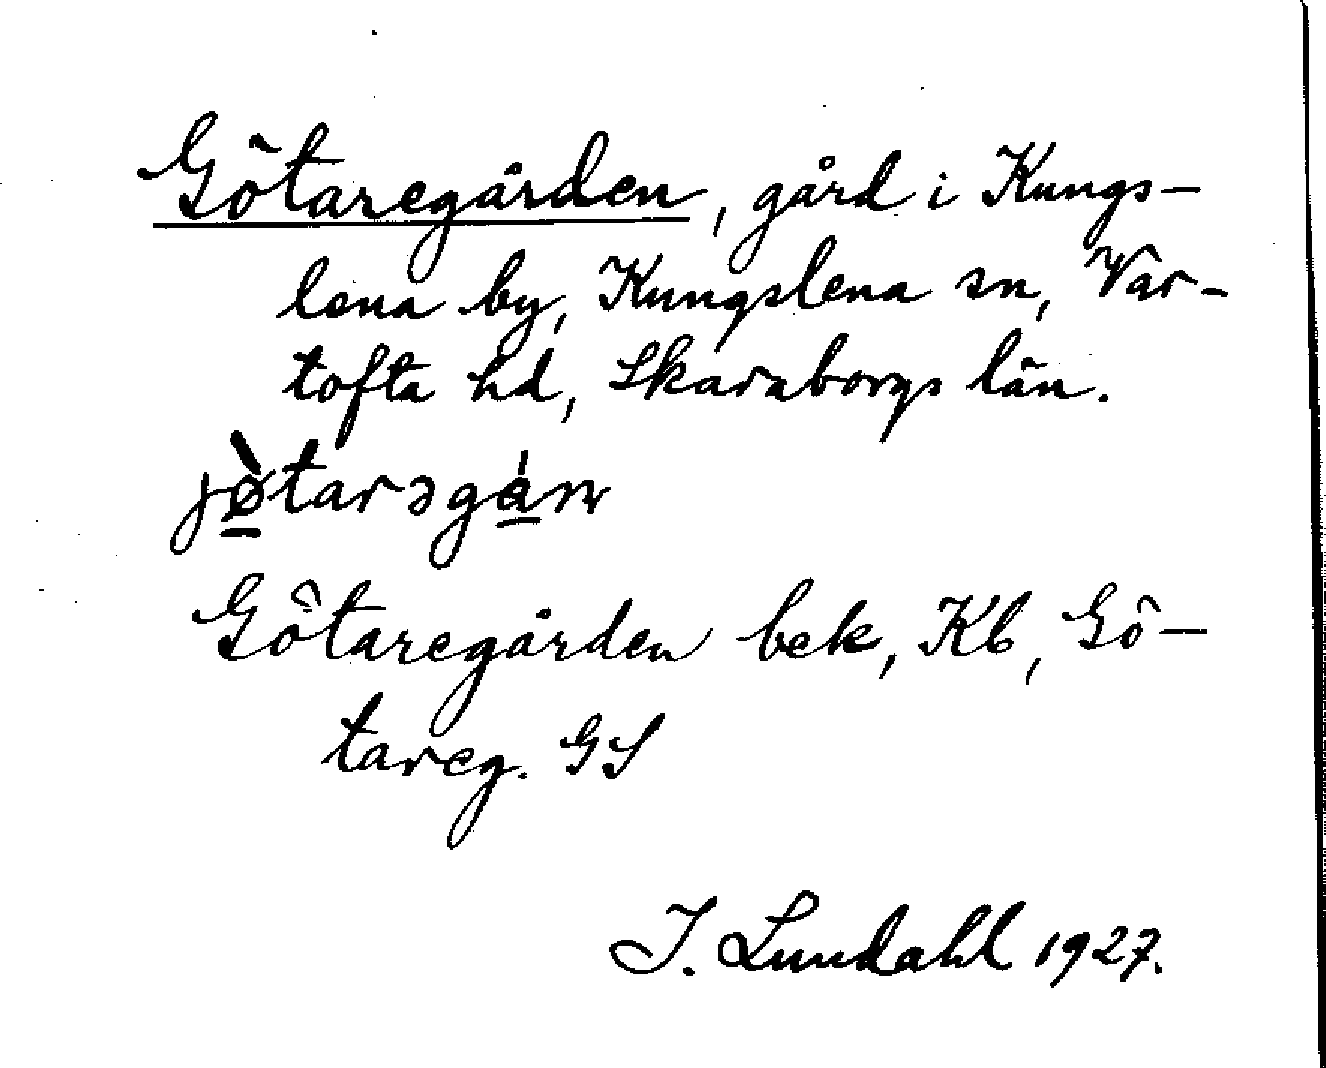 Götaregården, gård i Kungs-
lena by, Kungslena sn, Var-
tofta hd, Skaraborgs län.
jø̀tarəgán
Götaregården bek, Kb, Gö-
tareg. GS
I. Lundahl 1927.